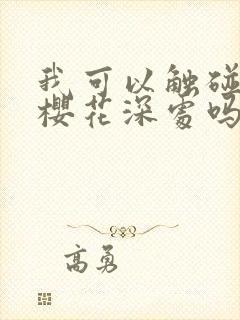 我可以触碰
樱花深处吗
高勇